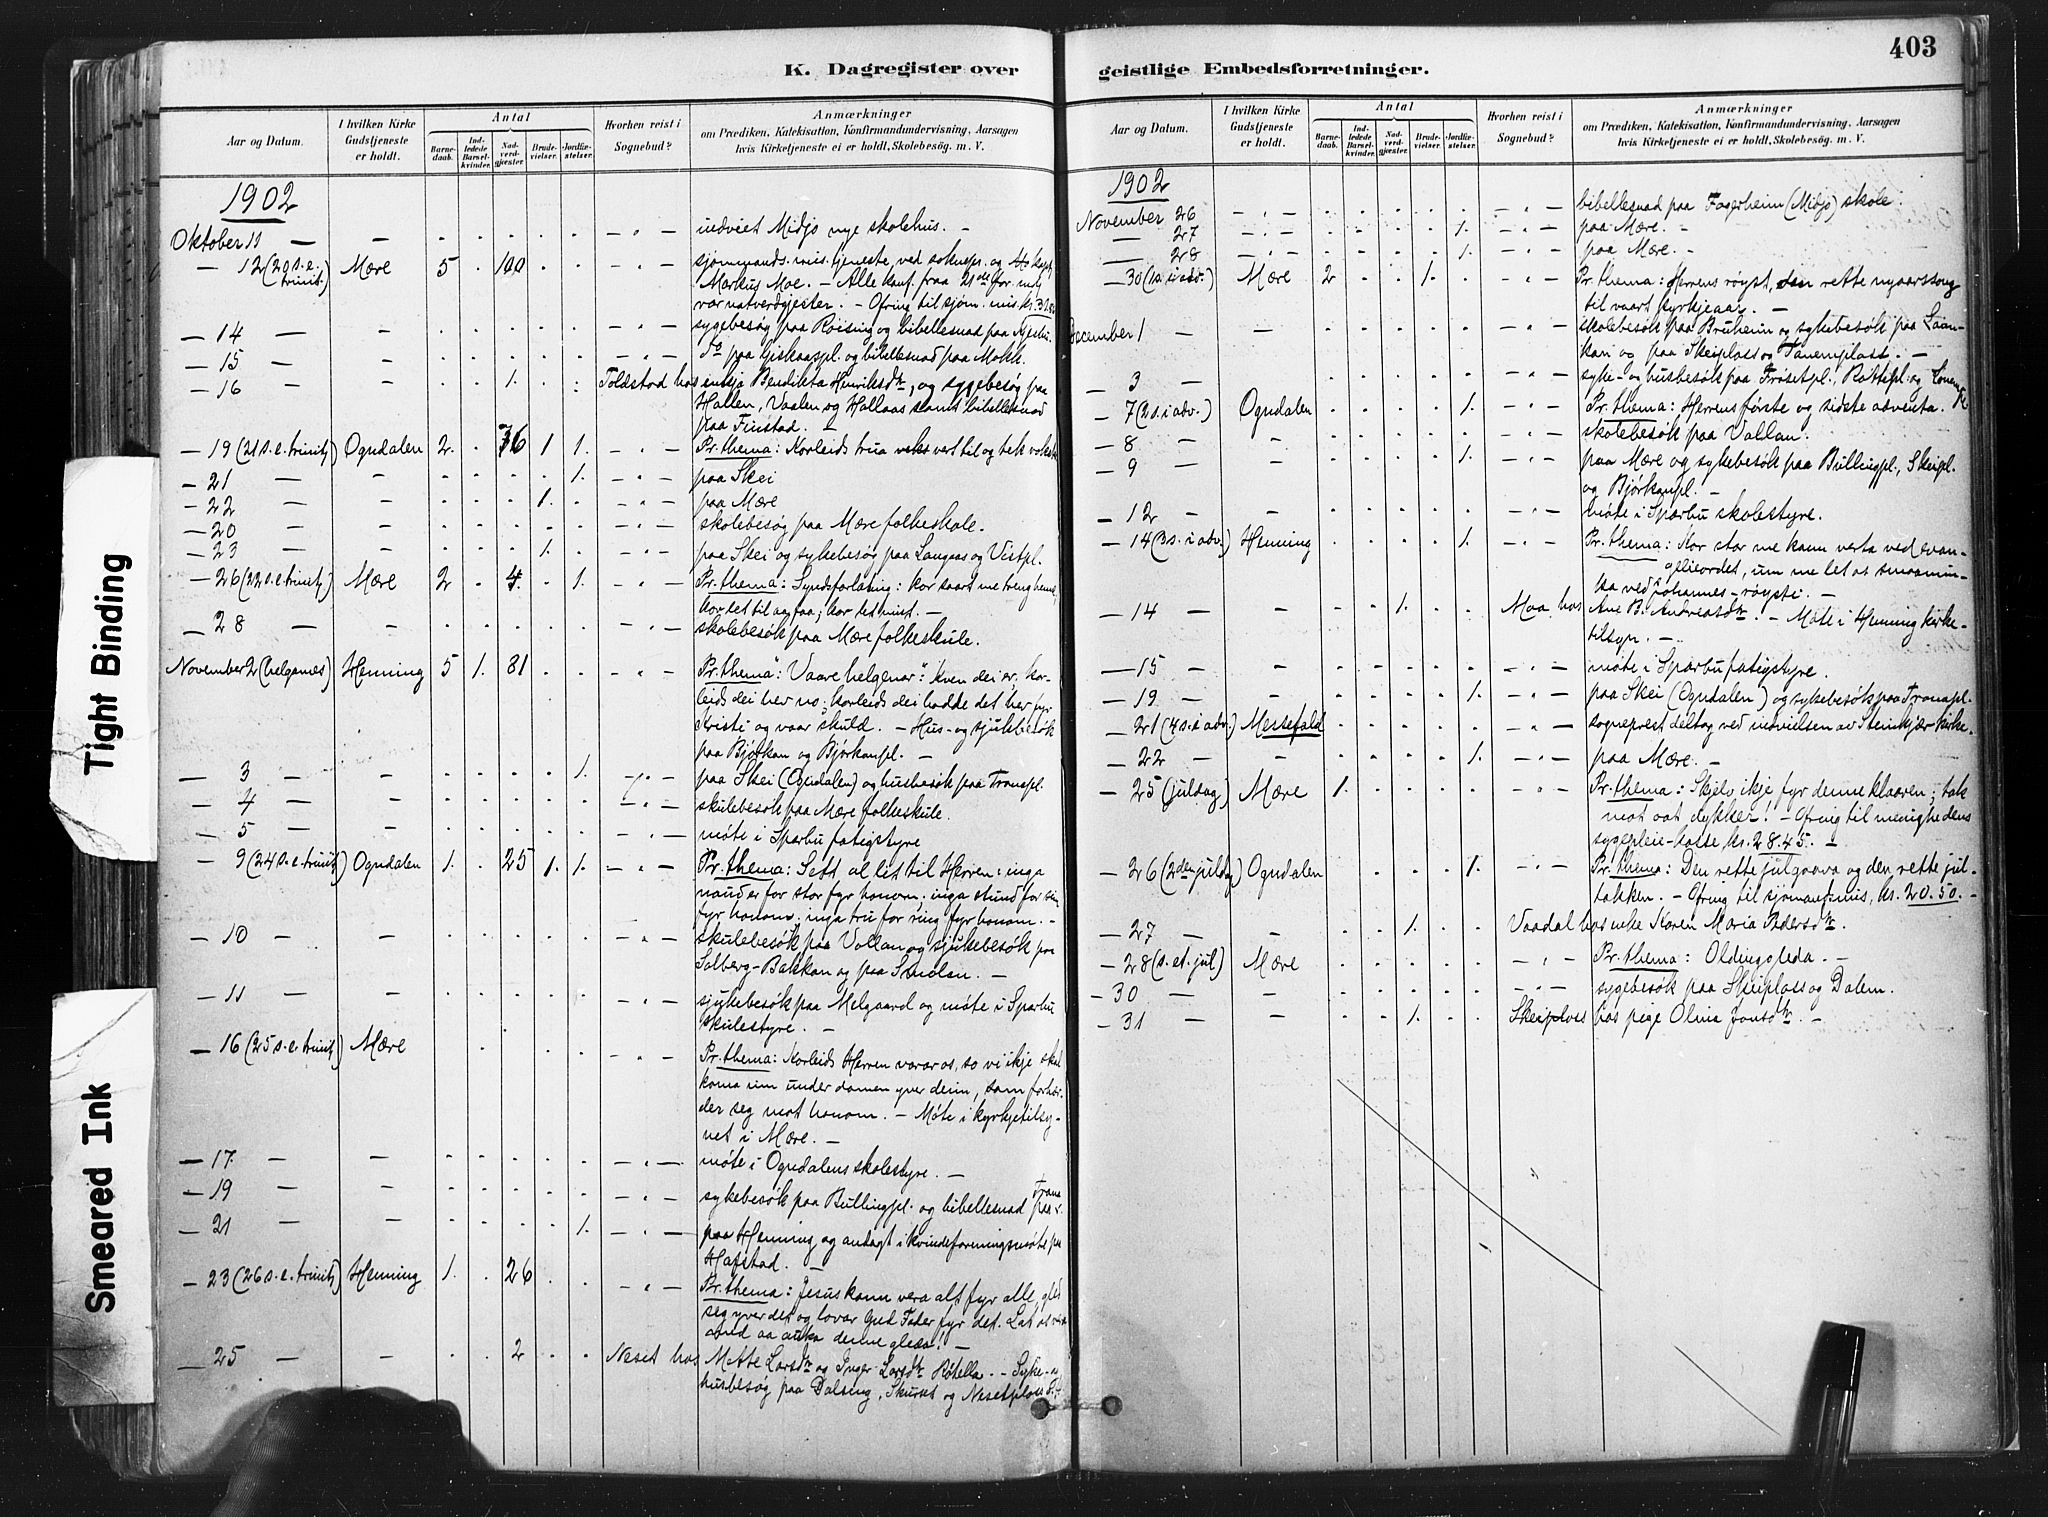 Tight Binding
Smeared Ink
K. Dagregister over
Aar og Datum.
I hvilken Kirke Gudstjeneste er holdt.
Antal
Barnedaab.
Indledede Barselkvinder.
Nadverdgjester.
Brudevielser.
Jordfæstelser.
Hvorhen reist i Sognebud?
Anmærkninger
om Prædiken, Katekisation, Konfirmandundervisning, Aarsagen
hvis Kirketjeneste ei er holdt, Skolebesög. m. V.
1902
Oktober 11 — — — " — indviet Midjo nye skolehus. —
— 12 (20 s. e. trinit.) Mære 5 100 — sjømands.mis. tjeneste, ved soknepr. og
Markus Moe. — Alle konf. fraa 21de
var natverdgjester. — Ofring til sjøm. mis. kr.
— 14 — — sygebesøg paa Røising og bibellesnad paa
— 15 — — Do paa bibellesnad paa Mokk.
— 16 — — 1. Toldstad hos enkja Bendikta Henriksdtr, og sygebesøg paa
Hallen, Vaalen og Hallaas samt bibellesnad
paa Finstad.
— 19 (21 s. e. trinit.) Ogndalen 2. 76 1 1. — Pr. thema: Korleids trua vert til og tek
— 21 — — 1. paa Skei
— 22 — — 1. paa Mære
— 20 — — skolebesøg paa Mære folkeskole.
— 23 — — 1. paa Skei og sykebesøk paa Langaas og Vistpl.
— 26 (22 s. e. trinit.) Mære 2 4. 1. — Pr. thema: Syndsforlating: kor saart me treng henne,
kor let til aa faa; kor let mist. —
— 28 — — skolebesøk paa Mære folkeskule.
November 2 (helgemes) Henning 5 1. 81 — Pr. thema "Vaare helgenar": kven dei er, kor-
leids dei her no; korleids dei hadde det her fyr
Kristi og vaar skuld. — Hus- og sjukebesøk
paa Bjørkan og Bjørkanpl. —
— 3 — — 1. paa Skei (Ogndalen) og husbesøk paa Tranapl.
— 4 — — skulebesøk paa Mære folkeskule.
— 5 — — møte i Sparbu fatigstyre
— 9 (24 s. e. trinit.) Ogndalen 1. 25 1. 1. — Pr. thema: Sett al lit til Herren: inga
naud er for stor fyr honom; inga stund for sein
fyr honom; inga tru for ring fyr honom. —
— 10 — — skulebesøk paa Vollan og sjukebesøk paa
Solberg-Bakkan og paa Smolan. —
— 11 — — sjukebesøk paa Melgaard og møte i Sparbu
skulestyre. —
— 16 (25 s. e. trinit.) Mære — Pr. thema: Korleids Herren varar os, so vi ikje skal
koma inn under domen yver deim, som forher-
der seg mot honom. — Møte i kyrkjetilsy-
net i Mære. —
— 17. — — møte i Ogndalens skolestyre. —
— 19 — — sykebesøk paa Bullingpl. og bibellesnad paa Trana
— 21 — — 1. paa Henning og andagt i kvindeforeningsmøte paa
Hafstad. —
— 23 (26 s. e. trinit.) Henning 1. 26 — Pr. thema: Jesus kann vera alt fyr alle, gled
seg yver det og lovar Gud Fader fyr det. Lat os
med aa auka denne gleda! —
— 25 — — 2 Neset hos Mette Larsdtr og Inger Larsdtr Røtella. — Syke- og
husbesøg paa Dalseng, Skurset og Nesetplass
403
geistlige Embedsforretninger.
Aar og Datum.
I hvilken Kirke Gudstjeneste er holdt.
Antal
Barnedaab.
Indledede Barselkvinder.
Nadverdgjester.
Brudevielser.
Jordfæstelser.
Hvorhen reist i Sognebud?
Anmærkninger
om Prædiken, Katekisation, Konfirmandundervisning, Aarsagen
hvis Kirketjeneste ei er holdt, Skolebesög. m. V.
1902
November 26 — — bibellesnad paa Fagerheim (Midjo) skole.
— 27 — — 1. paa Mære. —
— 28 — — 1. paa Mære. —
— 30 (1s. i adv.) Mære 2 1. — Pr. thema: Herrens røyst, den rette nyaarssong
til vaart kyrkjeaar. —
December 1 — — skolebesøk paa Bruheim og sykebesøk paa Laan-
kan og paa Skeiplass og Tanemplass. —
— 3 — — syke- og husbesøk paa Frøsetpl., og
— 7 (2 s. i adv.) Ogndalen 1. — Pr. thema: Herrens første og sidste adventa.
— 8 — — skolebesøk paa Vollan.
— 9 — — 1. paa Mære og sykebesøk paa Bullingpl., Skeipl.
og Bjørkanpl. —
— 12 — — møte i Sparbu skolestyre.
— 14 (3 s. i adv.) Henning 1. — Pr. thema: Kor stor me kann verta ved evan-
gelieordet, um me let os smaamin-
ka ved Johannes-røysti. —
— 14 — — 1. Moa hos Ane B. Andreasdtr. — Møte i Henning kirke-
tilsyn. —
— 15 — — møte i Sparbu fatigstyre.
— 19 — — 1. paa Skei (Ogndalen) og sykebesøk paa Tranapl.
— 21 (4 s. i adv.) Messefald — sogneprest deltog ved indvielsen av Steinkjær kirke.
— 22 — — 1. paa Mære. —
— 25 (juldag) Mære 1. — Pr. thema: Skjelv ikje fyr denne klaaren; tak
mot aat dykker! — Ofring til menighedens
sygepleie-kasse kr. 28.45. —
— 26 (2den juldag) Ogndalen 1. — Pr. thema: Den rette julgaava og den rette jul-
takken. — Ofring til sjømandsmis. kr. 20.50. —
— 27 — — 1. Vaadal hos enke Karen Maria Pedersdtr.
— 28 (s. et. jul) Mære — Pr. thema: Oldingsgleda. —
— 30 — — sygebesøk paa Skeiplass og Dalem.
— 31 — — 1. Skeiplass hos pige Olina Jonsdtr. —